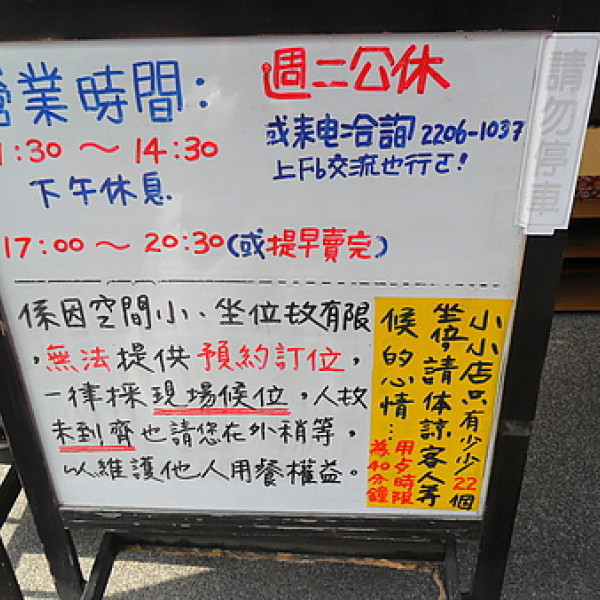 營業時間:
1:30 ~ 14:30
下午休息
17:00 ~ 20:30(或提早賣完)
週二公休
或來电洽詢 2206-1037
上Fb交流也行ㄛ!
請勿停車
係因空間小、坐位数有限
,無法提供預約訂位,
一律採現場候位,人数
未到齊也請您在外稍等,
以維護他人用餐權益。
小小店只有少少22個
坐位,請体諒客人等
候的心情…
用歺時限
為40分鐘